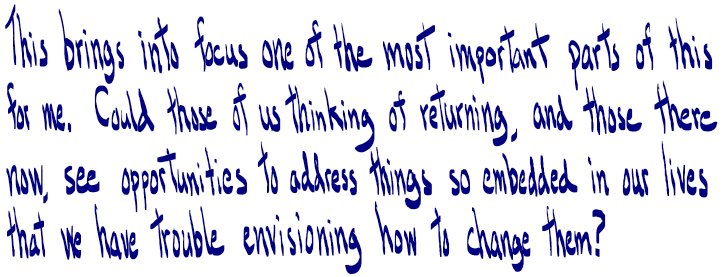 This brings into focus one of the most important parts of this
for me. Could those of us thinking of returning, and those there
now, see opportunities to address things so embedded in our lives
that we have trouble envisioning how to change them?